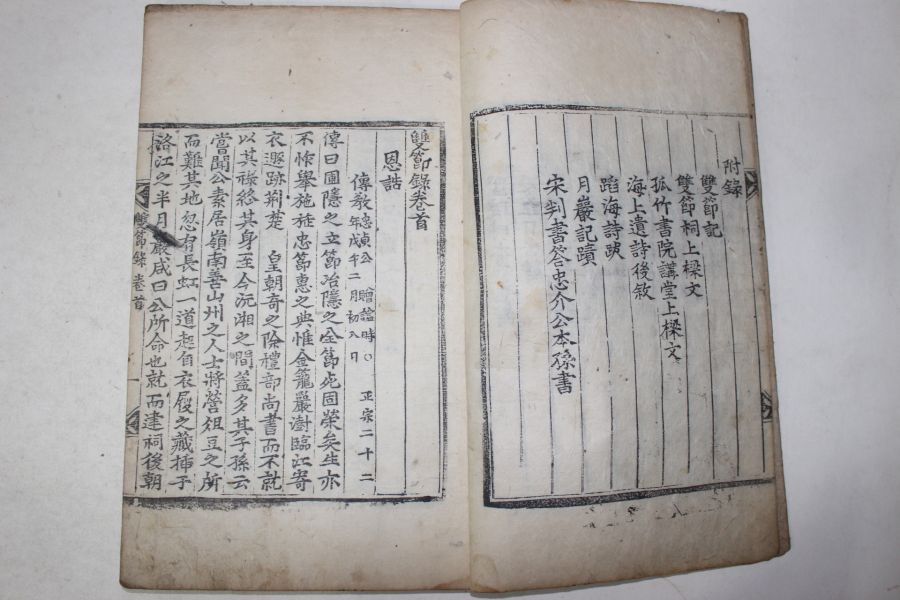 附錄
雙節記
雙節祠上樑文
孤竹書院講堂上樑文
海上遺詩後敘
蹈海詩跋
月巖記蹟
宋判書答忠介公本孫書
雙節錄卷首
恩誥
傳教忠貞公 贈諡時○ 正宗二十二
年戊午二月初八日
傳曰圃隱之立節冶隱之全節死固榮矣生亦
不怍舉施旌忠節惠之典惟金籠巖澍臨江寄
衣遯跡荊楚 皇朝奇之除禮部尚書而不就
以其祿終其身至今沅湘之間蓋多其子孫云
嘗聞公素居嶺南善山州之人士將營俎豆之所
而難其地忽有長虹一道起自衣履之藏揷于
洛江之半月巖咸曰公所命也就而建祠後朝
雙節錄 卷首 一